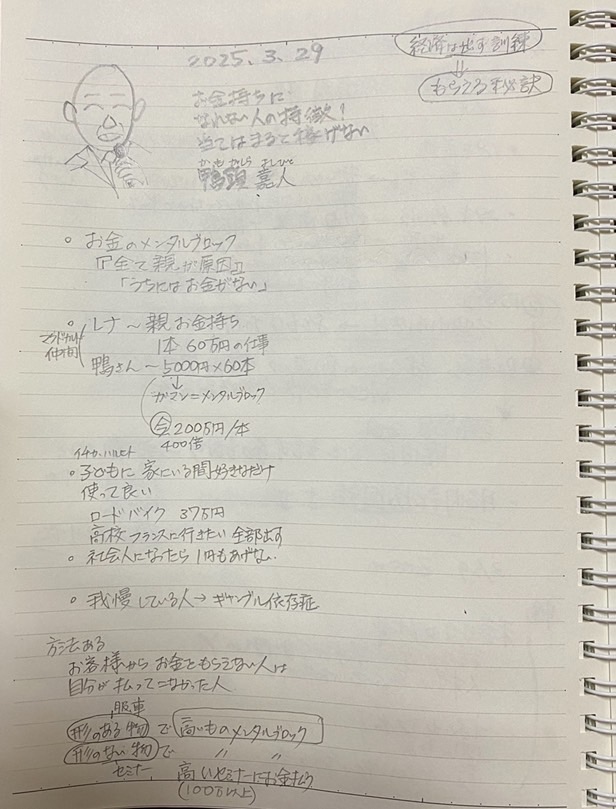 経済は出す訓練
⇓
もらえる秘訣
2025.3.29
お金持ちに
なれない人の特徴!
当てはまると稼げない
かもがしら よしひと
鴨頭 嘉人
○ お金のメンタルブロック
『全て親が原因』
「うちにはお金がない」
○ レナ〜親お金持ち
マクドナルド
仲間
1本 60万円の仕事
鴨さん〜5000円×60本
↓
ガマン=メンタルブロック
今 200万円/本
400倍
○ 子どもに 家にいる間好きなだけ
使って良い
ロードバイク 37万円
高校 フランスに行きたい 全部出す
○ 社会人になったら1円もあげない
○ 我慢している人→ギャンブル依存症
方法ある
お客様からお金をもらえない人は
自分が払ってこなかった人
服車
形のある物で 高いものメンタルブロック
形のない物で 〃 〃
セミナー 高いセミナーにお金払う
(100万以上)